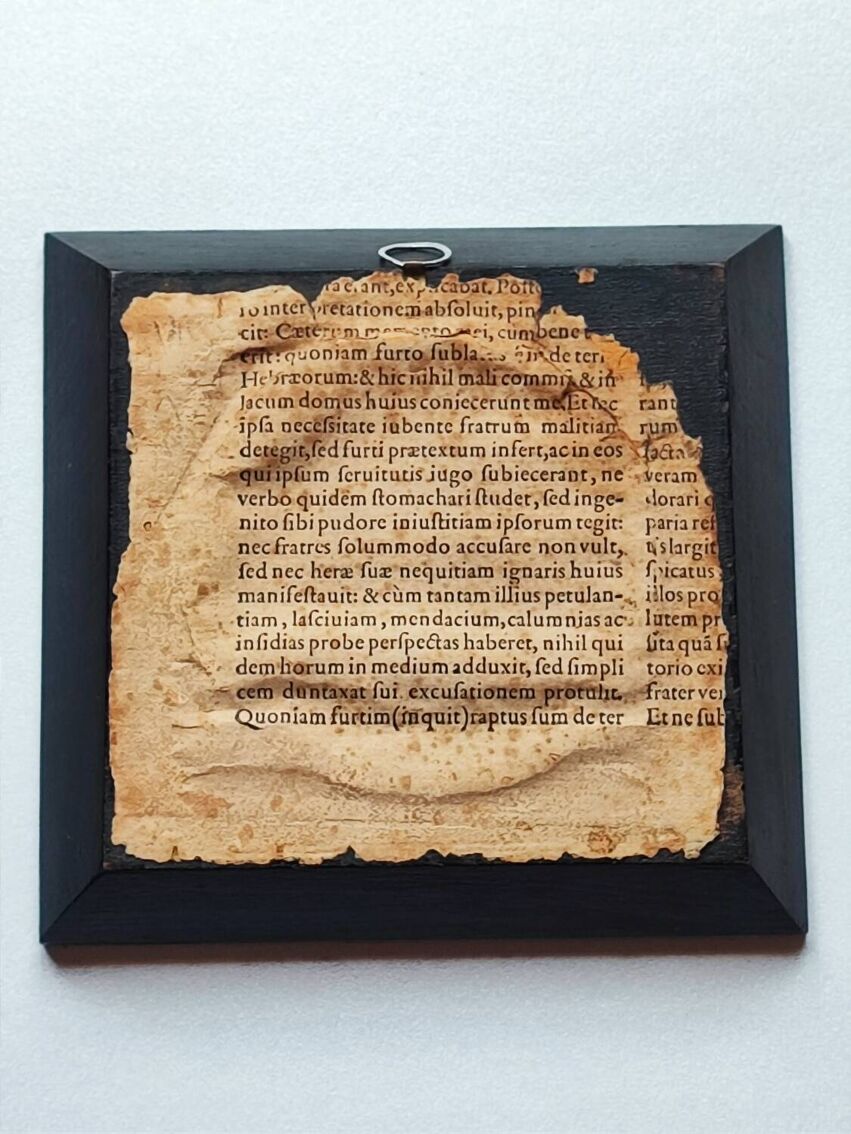 cabat. Post
ro interpretationem abſoluit, pin
cit: Cæterum memento mei, cum bene t
erit: quoniam furto ſubla de terr
Hebræorum: & hic nihil mali commiſi, & in
lacum domus huius coniecerunt me. Et hæc
ipſa neceſsitate iubente fratrum malitiam
detegit, ſed furti prætextum inſert, ac in eos
qui ipſum ſeruitutis iugo ſubiecerant, ne
verbo quidem ſtomachari ſtudet, ſed inge-
nito ſibi pudore iniuſtitiam ipſorum tegit:
nec fratres ſolummodo accuſare non vult,
ſed nec heræ ſuæ nequitiam ignaris huius
manifeſtauit: & cùm tantam illius petulan-
tiam, laſciuiam, mendacium, calumnias ac
inſidias probe perſpectas haberet, nihil qui
dem horum in medium adduxit, ſed ſimpli
cem duntaxat ſui excuſationem protulit.
Quoniam furtim (inquit) raptus ſum de ter
rant
rum
facta
veram
dorari q
paria ref
tis largit
ſpicatus
illos pro
lutem pr
ſita quã ſ
torio exi
frater ver
Et ne ſub